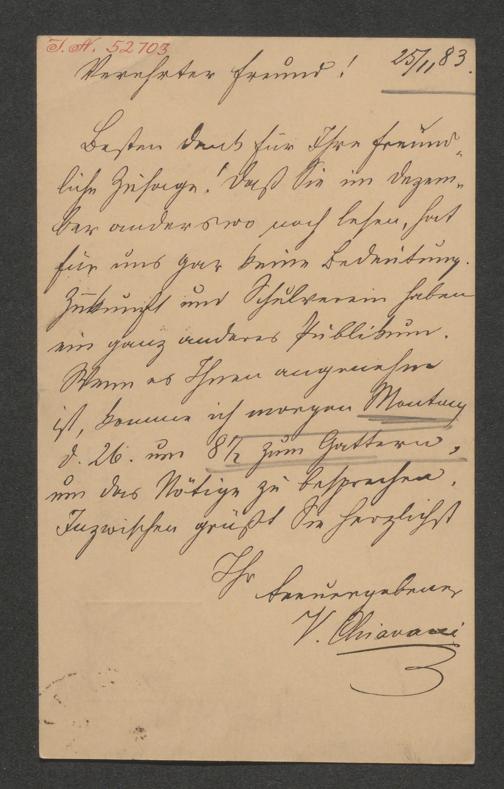 I. N. 52703
25/11 83.
Verehrter Freund!
Besten Dank für Ihre freund-
liche Zusage! Daß Sie im Dezem-
ber anderswo noch lesen, hat
für uns gar keine Bedeutung.
Zukunft und Schulverein haben
ein ganz anderes Publikum.
Wenn es Ihnen angenehm
ist, komme ich morgen Montag
d. 26. um 8½ zum Gattern,
um das Nötige zu besprechen.
Inzwischen grüßt Sie herzlichst
Ihr
treuergebener
V. Chiavacci